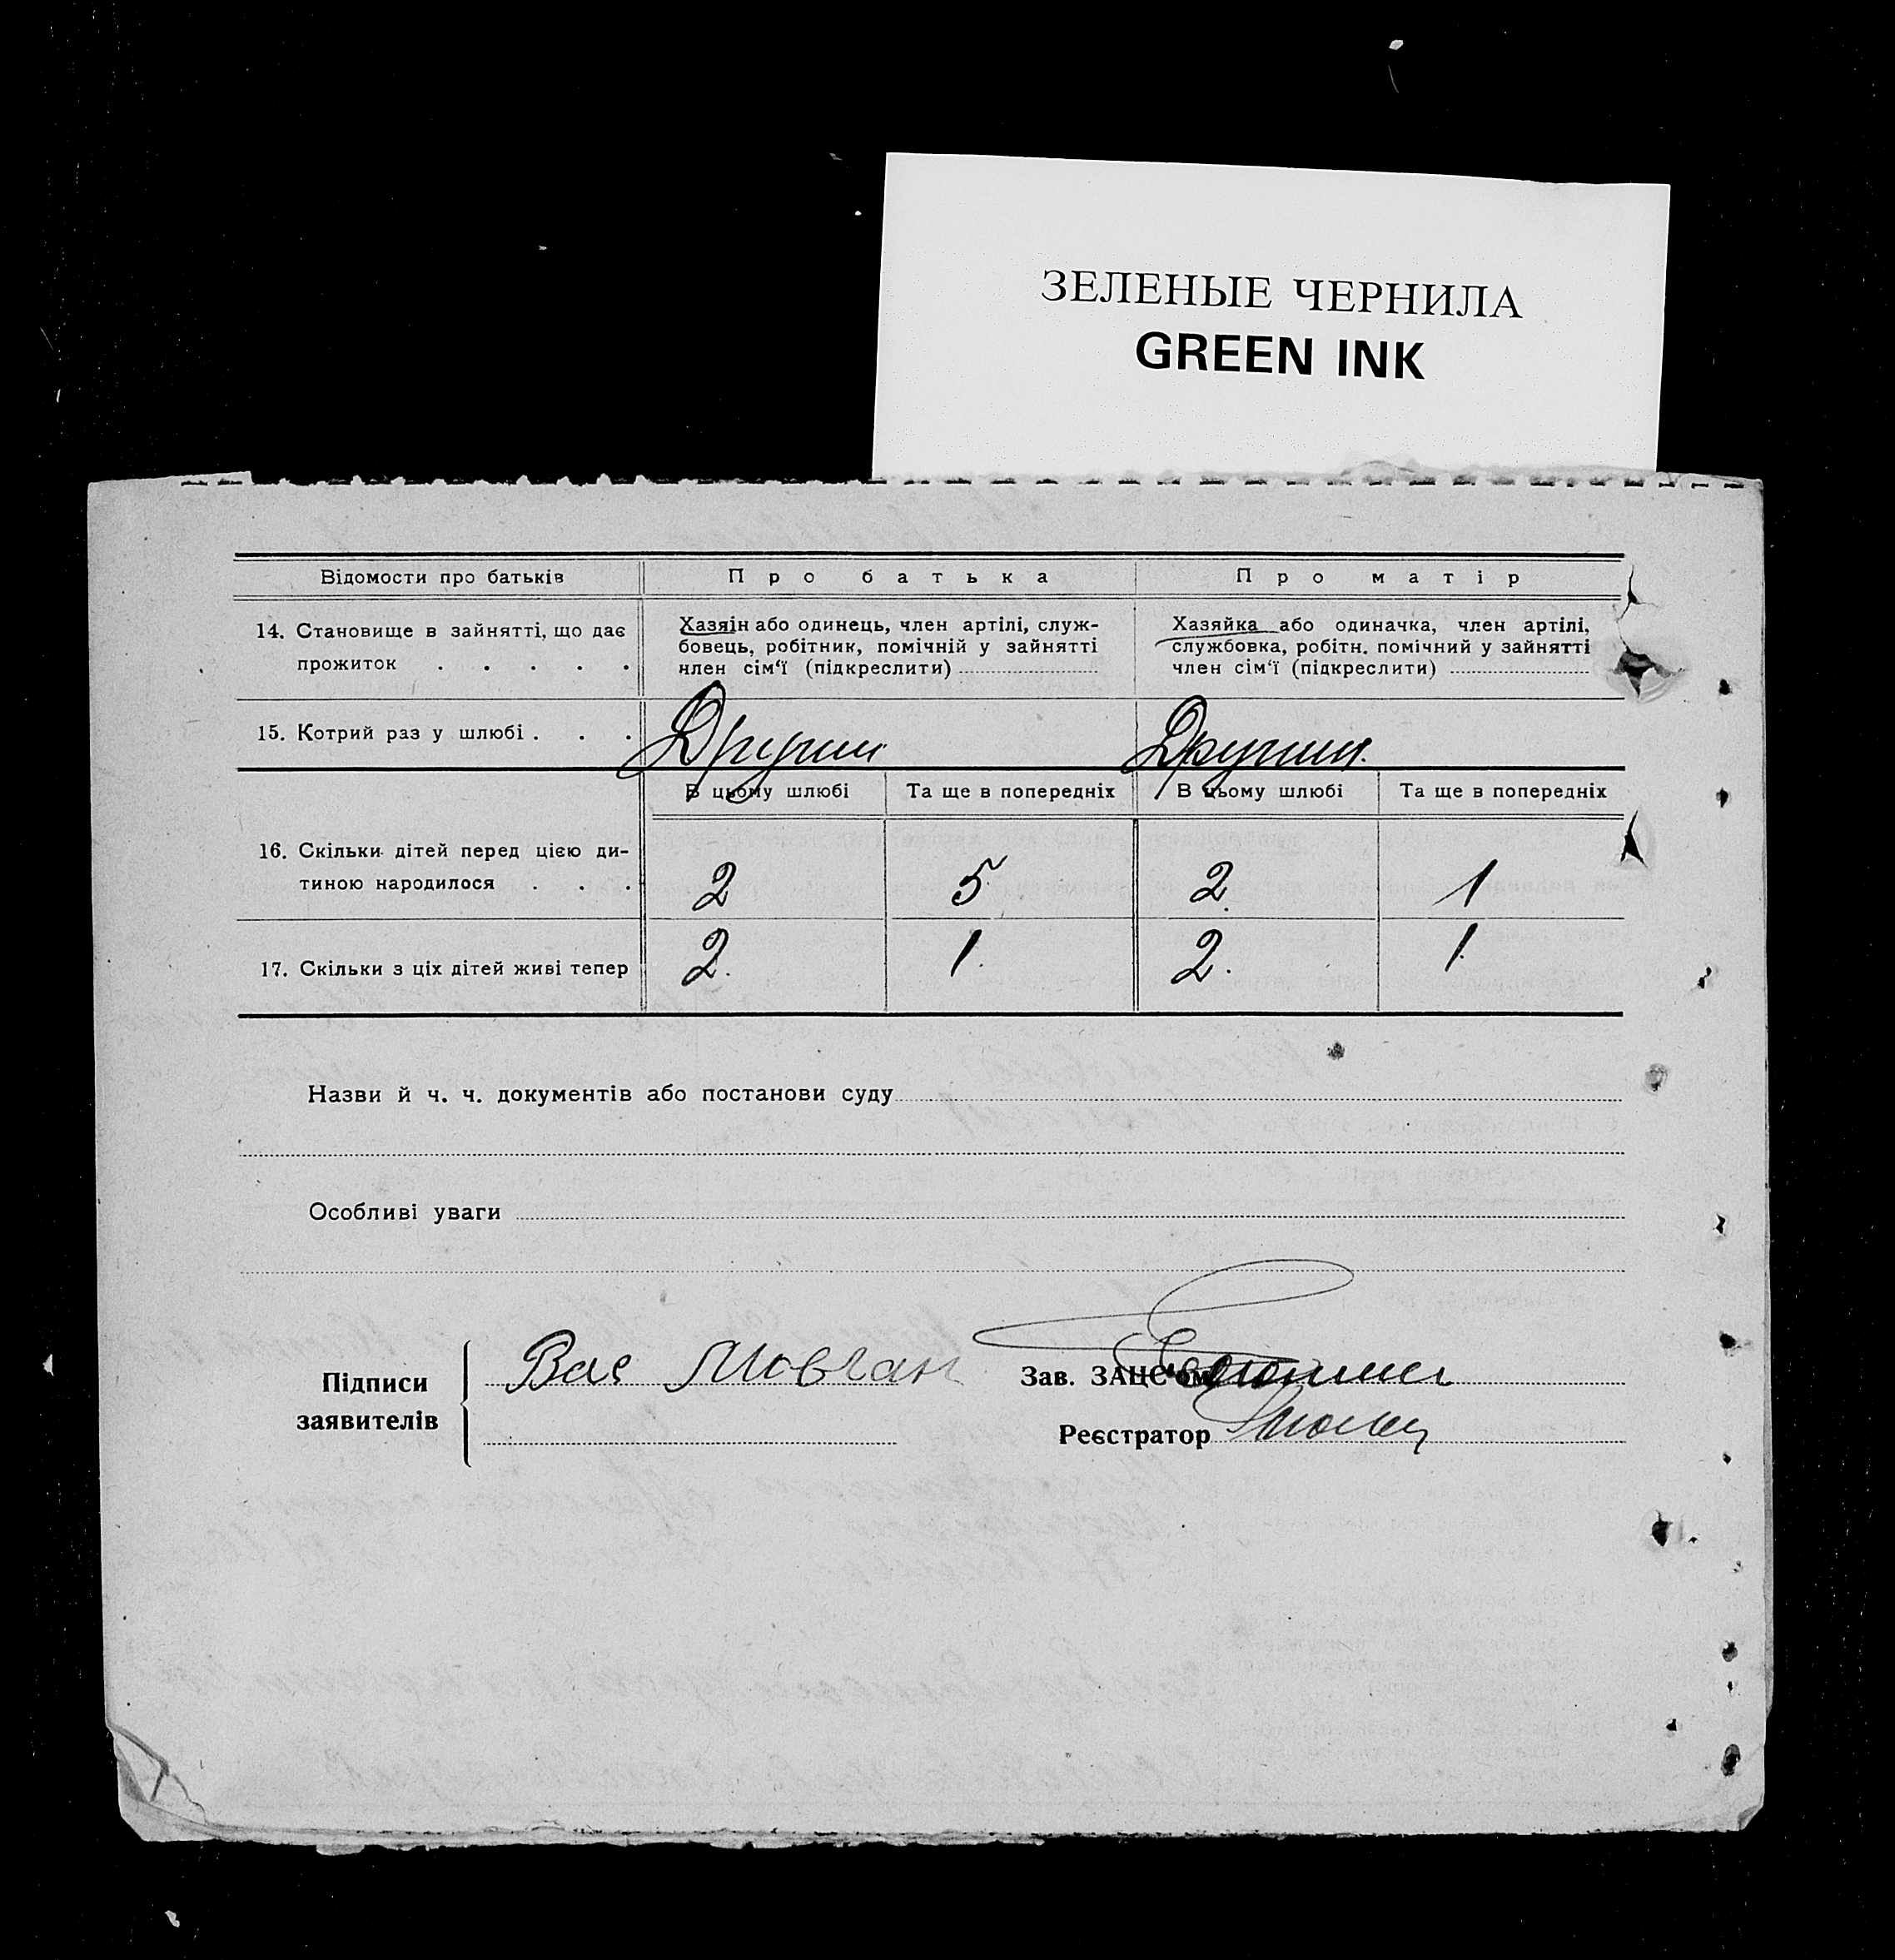 ЗЕЛЕНЫЕ ЧЕРНИЛА
GREEN INK
Відомости про батьків Про батька Про матір
14. Становище в зайнятті, що дає
прожиток . . . . .
Хазяін або одинець, член артілі, служ-
бовець, робітник, помічній у зайнятті
член сім‘ї (підкреслити)
Хазяйка або одиначка, член артілі,
службовка, робітн. помічний у зайнятті
член сім‘ї (підкреслити)
15. Котрий раз у шлюбі . . . Другий Другий
В цьому шлюбі Та ще в попередніх В цьому шлюбі Та ще в попередніх
16. Скільки дітей перед цією ди-
тиною народилося . . . 2 5 2 1
17. Скільки з ціх дітей живі тепер 2. 1. 2. 1
Назви й ч. ч. документів або постанови суду
Особливі уваги
Підписи
заявителів
Вас Мовчан
Зав. ЗАЦС‘ом
Реєстратор